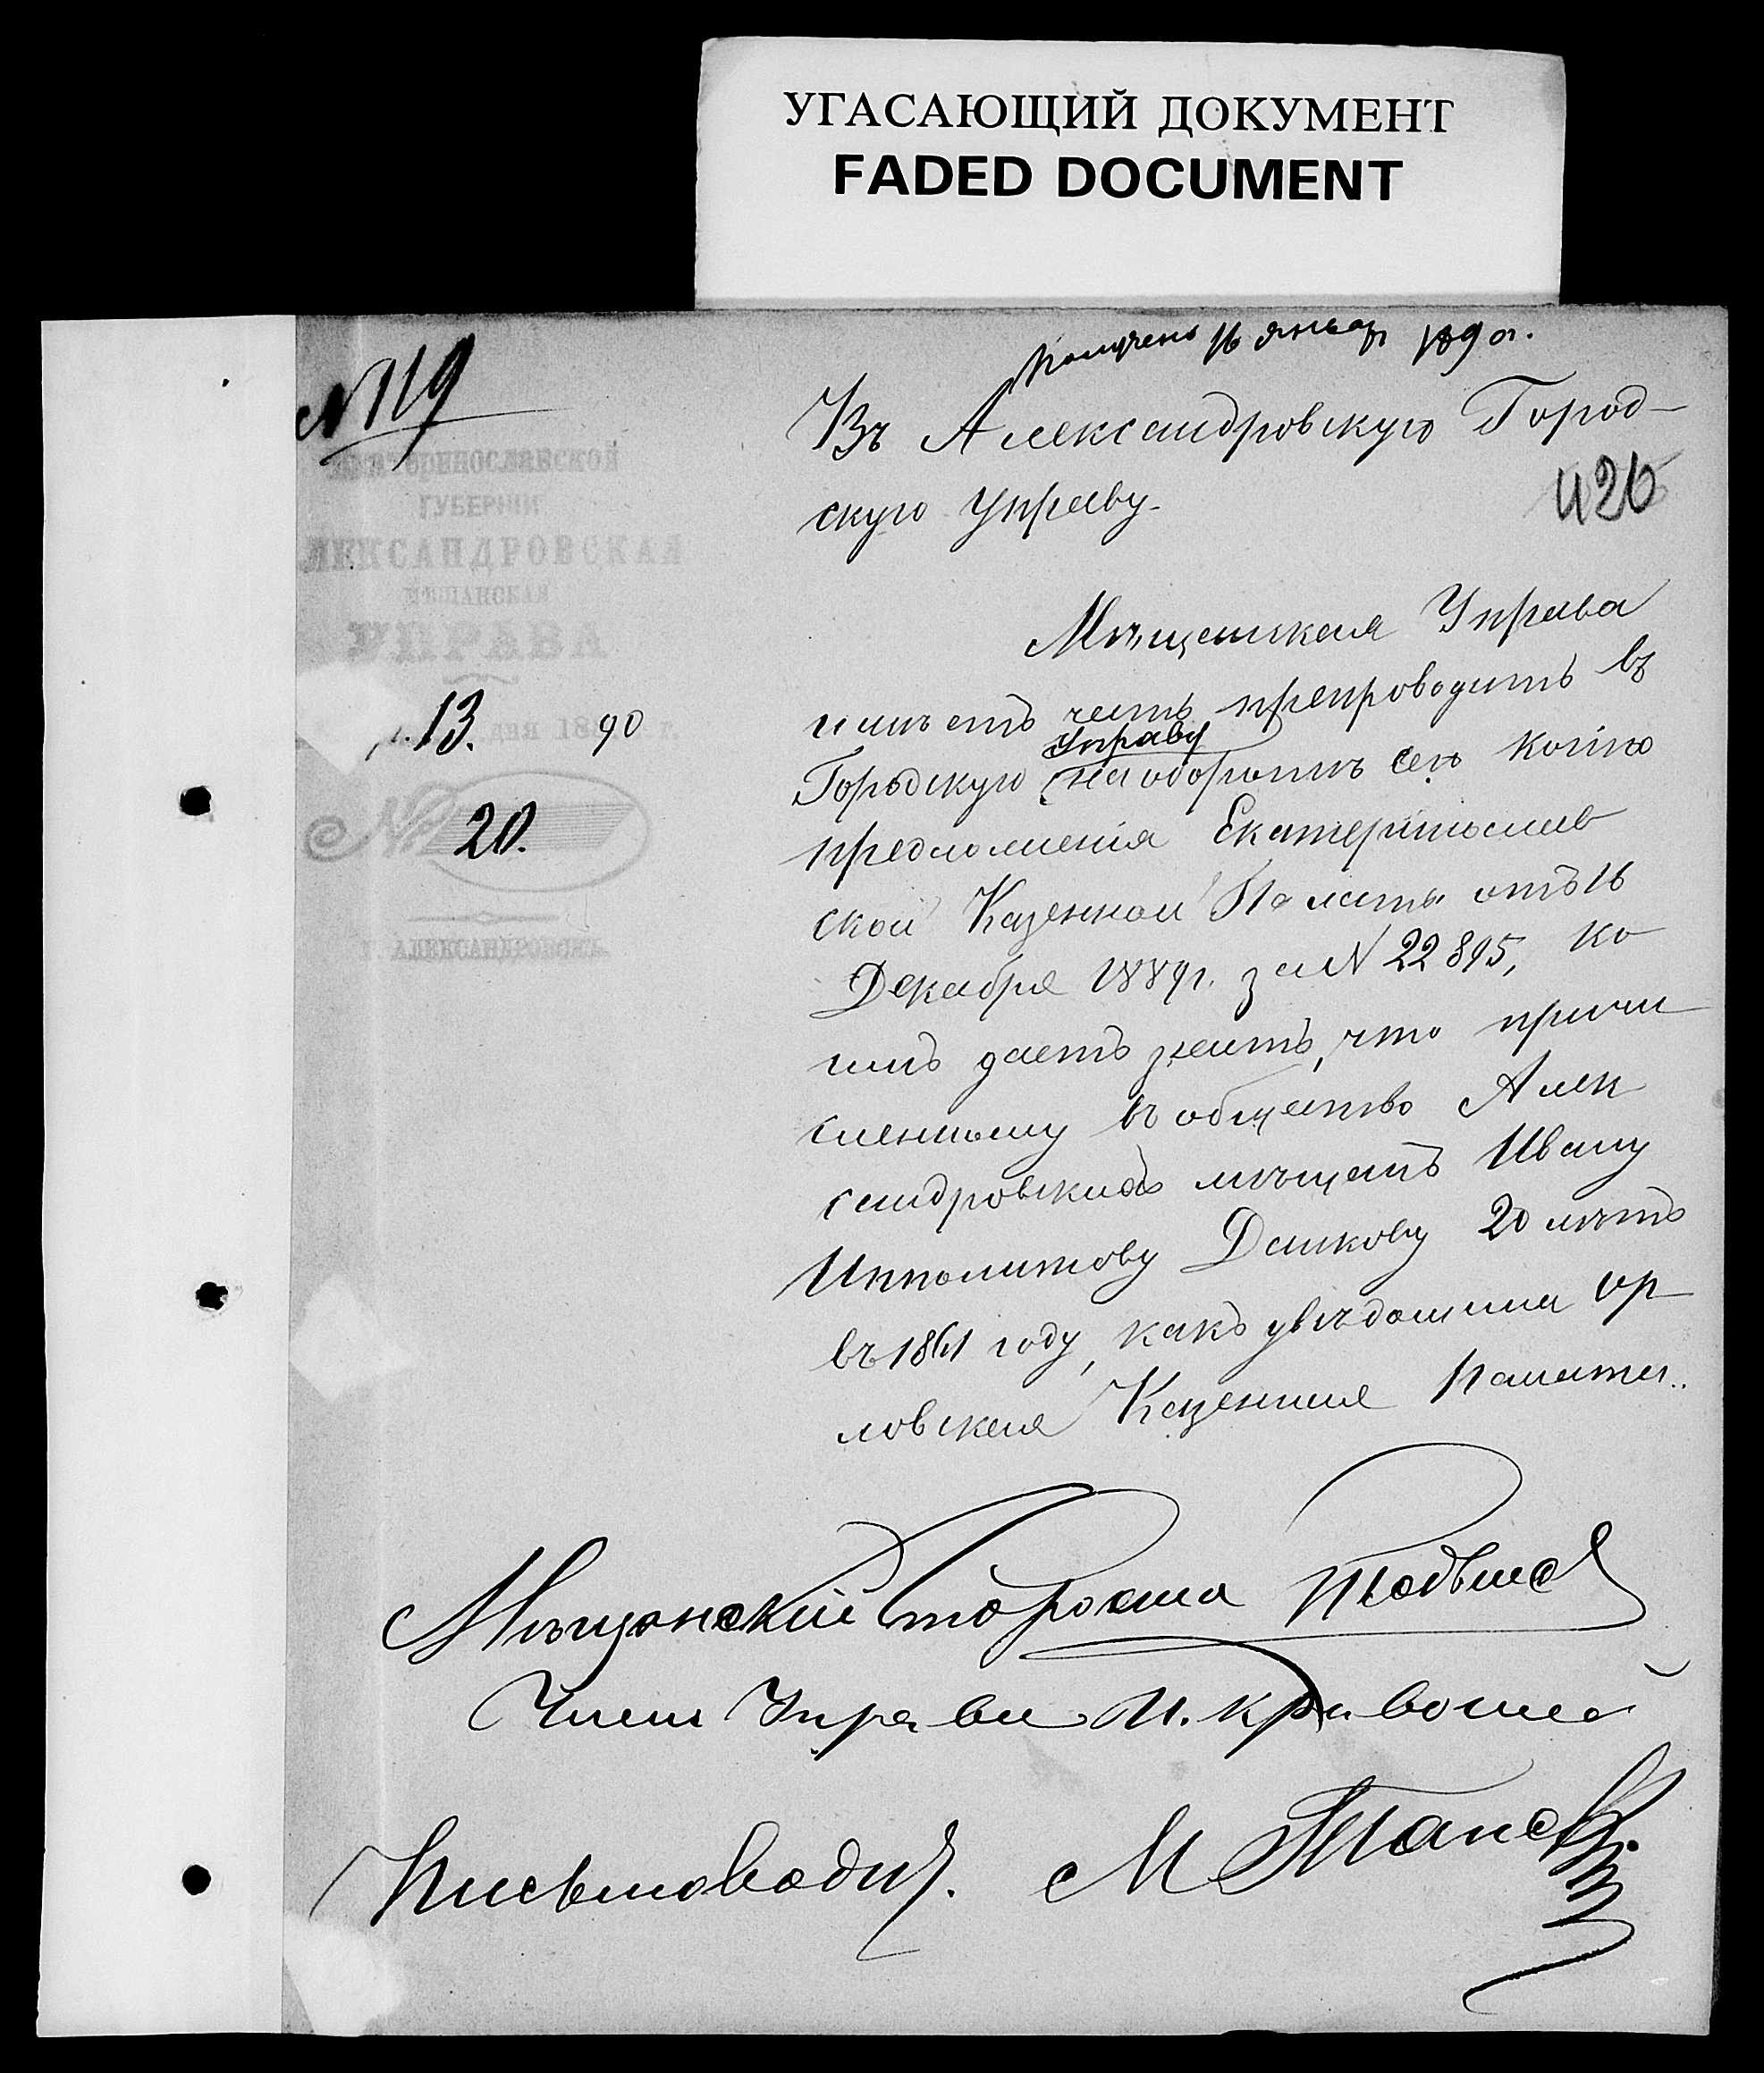 УГАСАЮЩИЙ ДОКУМЕНТ
FADED DOCUMENT
Получено 16 Января 1890 г.
№ 119
Въ Александровскую Город-
скую Управу.
426
ЕКАТЕРИНОСЛАВСКОЙ
ГУБЕРНІИ
АЛЕКСАНДРОВСКАЯ
МѢЩАНСКАЯ
УПРАВА
13. дня 1890 г.
№ 20.
Г. АЛЕКСАНДРОВСКЪ
Мѣщанская Управа
имѣетъ честь препроводить въ
Управу
Городскую на оборотѣ сего копію
предложенія Екатеринослав
ской Казенной Палаты отъ 16
Декабря 1889 г. за № 22895, ко
имъ даетъ знать, что причи
сленному въ общество Алек
сандровскихъ мѣщанъ Ивану
Ипполитову Дашкову 20 лѣтъ
въ 1861 году, какъ увѣдомила Ор
ловская Казенная Палата.
Мѣщанскій Староста
Членъ Управы И. Кривошей
Письмоводит.
М